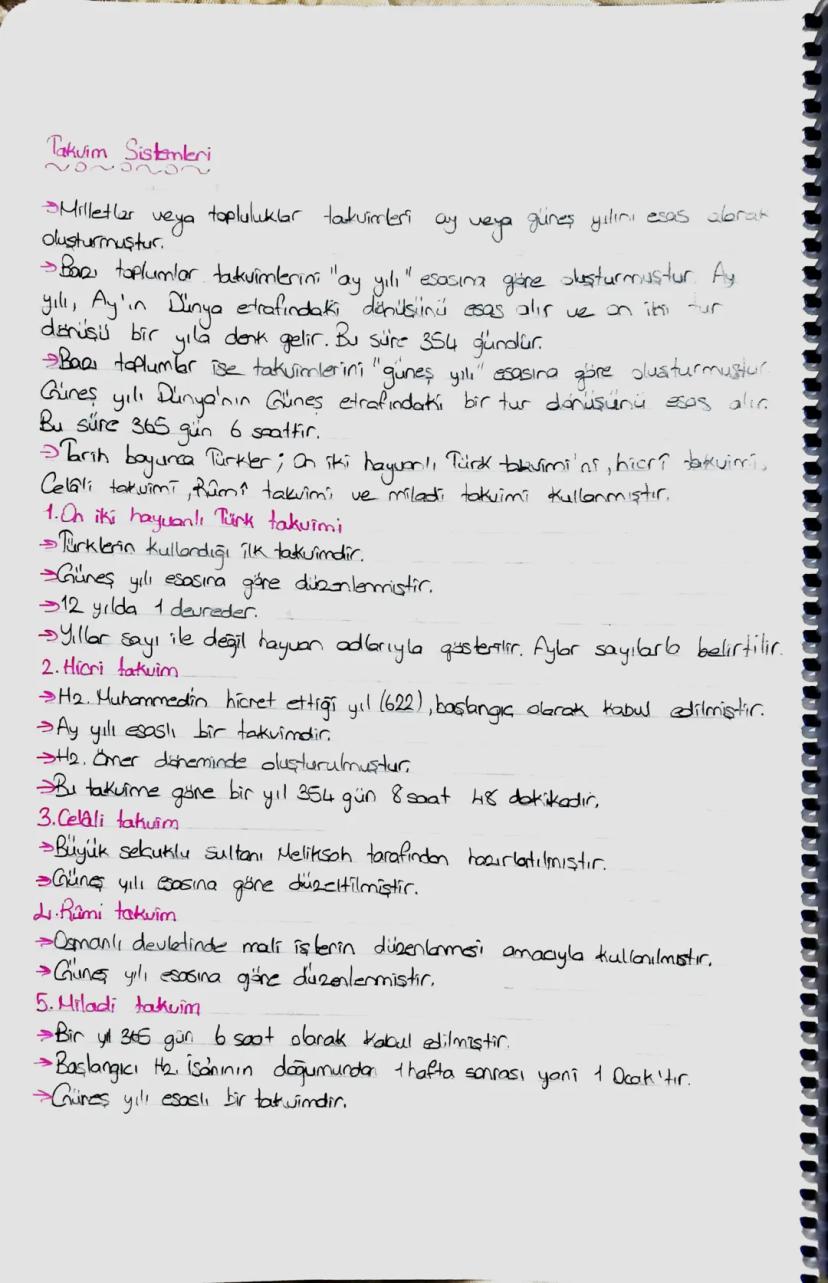 Takvim Sistemleri
→Milletler veya topluluklar takvimleri ay veya güneş yılını esas alarak
oluşturmuştur.
→Bazı toplumlar takvimlerini "ay yılı" esasına göre oluşturmuştur. Ay
yılı, Ay'ın Dünya etrafındaki dönüşünü esas alır ve on iki tur
dönüşü bir yıla denk gelir. Bu süre 354 gündür.
→Bazı toplumlar ise takvimlerini "güneş yılı" esasına göre oluşturmuştur.
Güneş yılı Dünya'nın Güneş etrafındaki bir tur dönüşünü esas alır.
Bu süre 365 gün 6 saattir.
→Tarih boyunca Türkler; On iki hayvanlı Türk takvimi'ni, hicrî takvimi,
Celâli takvimi, Rûmî takvimi ve miladi takvimi kullanmıştır.
1.On iki hayvanlı Türk takvimi
→Türklerin kullandığı ilk takvimdir.
→Güneş yılı esasına göre düzenlenmiştir.
→12 yılda 1 devreder.
→Yıllar sayı ile değil hayvan adlarıyla gösterilir. Aylar sayılarla belirtilir.
2.Hicri takvim
→Hz. Muhammedin hicret ettiği yıl (622), başlangıç olarak kabul edilmiştir.
→Ay yılı esaslı bir takvimdir.
→Hz. Ömer döneminde oluşturulmuştur.
→Bu takvime göre bir yıl 354 gün 8 saat 48 dakikadır.
3.Celâli takvim
→Büyük selçuklu sultanı Melikşah tarafından hazırlatılmıştır.
→Güneş yılı esasına göre düzeltilmiştir.
4.Rûmi takvim
→Osmanlı devletinde mali işlerin düzenlemesi amacıyla kullanılmıştır.
→Güneş yılı esasına göre düzenlenmiştir.
5.Miladi takvim
→Bir yıl 365 gün 6 saat olarak kabul edilmiştir.
→Başlangıcı Hz. İsa'nının doğumundan 1 hafta sonrası yani 1 Ocak'tır.
→Güneş yılı esaslı bir takvimdir.